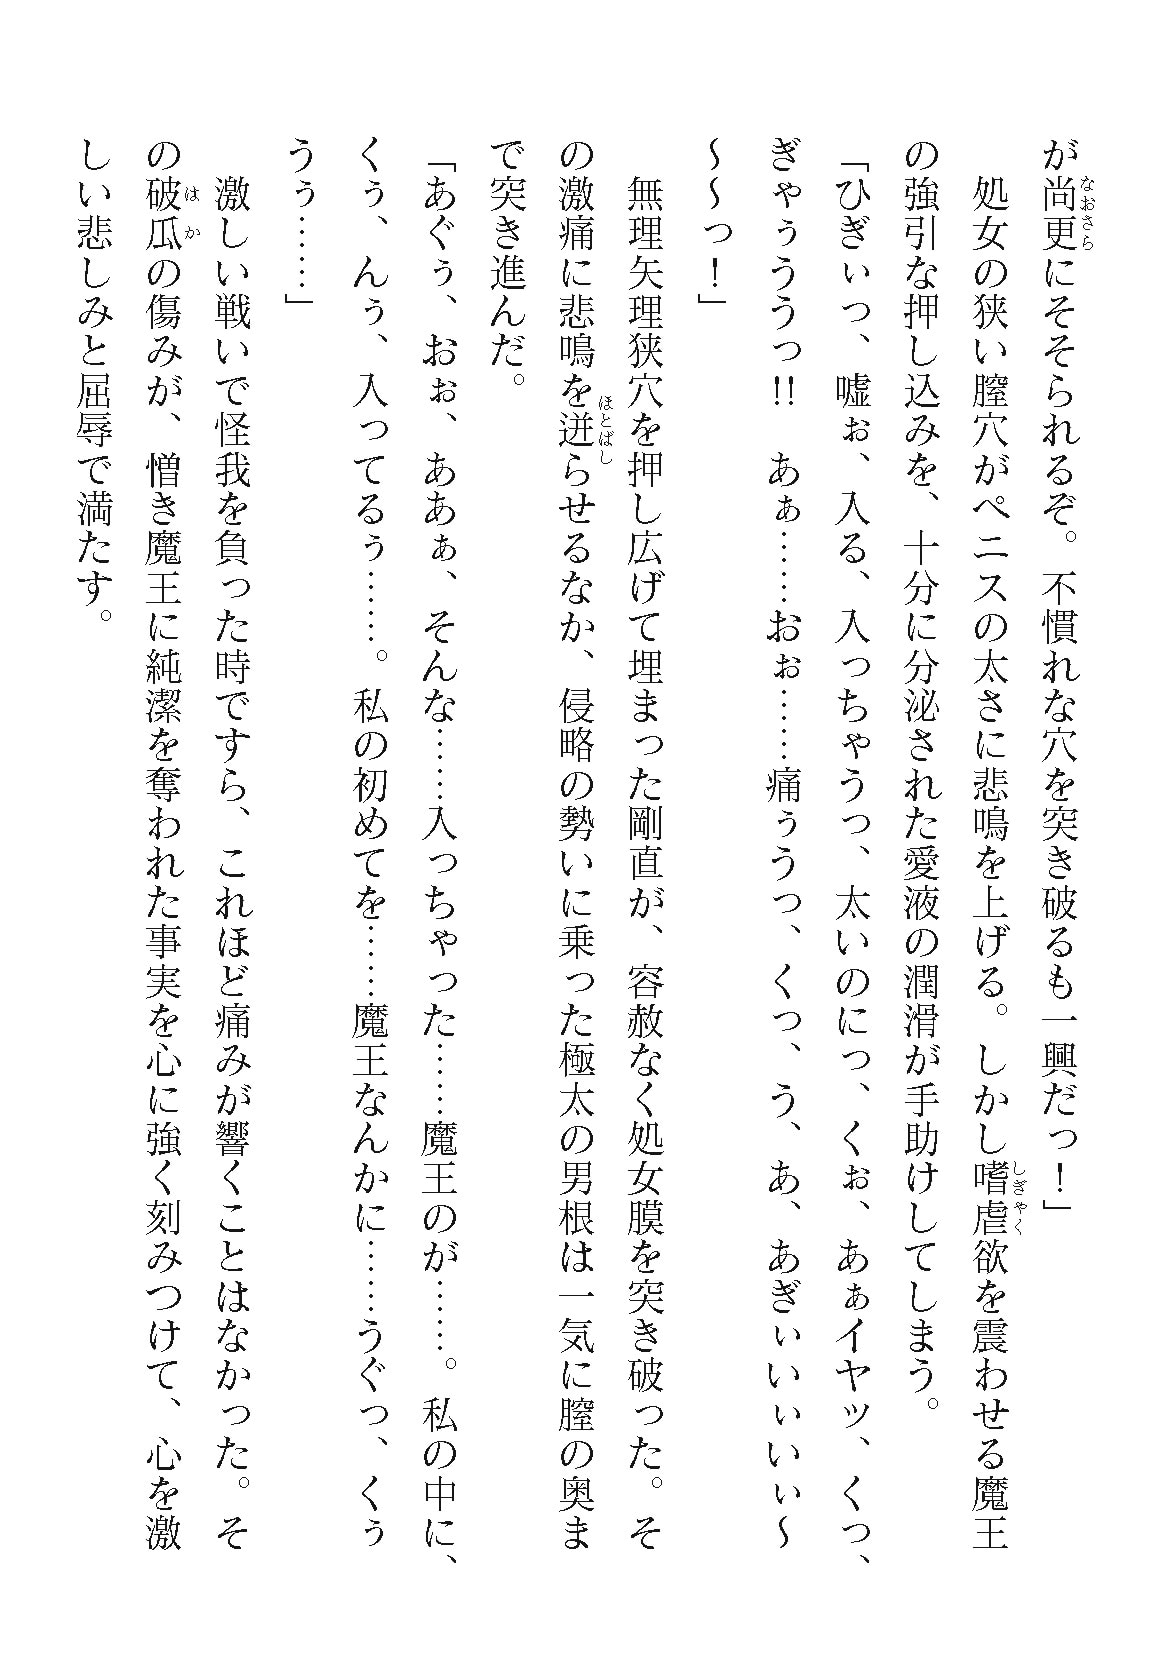 が尚更にそそられるぞ。不慣れな穴を突き破るも一興だっ！」
　処女の狭い膣穴がペニスの太さに悲鳴を上げる。しかし嗜虐欲を震わせる魔王
の強引な押し込みを、十分に分泌された愛液の潤滑が手助けしてしまう。
「ひぎぃっ、嘘ぉ、入る、入っちゃうっ、太いのにっ、くぉ、あぁイヤッ、くっ、
ぎゃぅううっ!!　あぁ……おぉ……痛ぅうっ、くっ、う、あ、あぎぃいぃいぃ～
～～っ！」
　無理矢理狭穴を押し広げて埋まった剛直が、容赦なく処女膜を突き破った。そ
の激痛に悲鳴を迸らせるなか、侵略の勢いに乗った極太の男根は一気に膣の奥ま
で突き進んだ。
「あぐぅ、おぉ、ああぁ、そんな……入っちゃった……魔王のが……。私の中に、
くぅ、んぅ、入ってるぅ……。私の初めてを……魔王なんかに……うぐっ、くぅ
うぅ……」
　激しい戦いで怪我を負った時ですら、これほど痛みが響くことはなかった。そ
の破瓜の傷みが、憎き魔王に純潔を奪われた事実を心に強く刻みつけて、心を激
しい悲しみと屈辱で満たす。